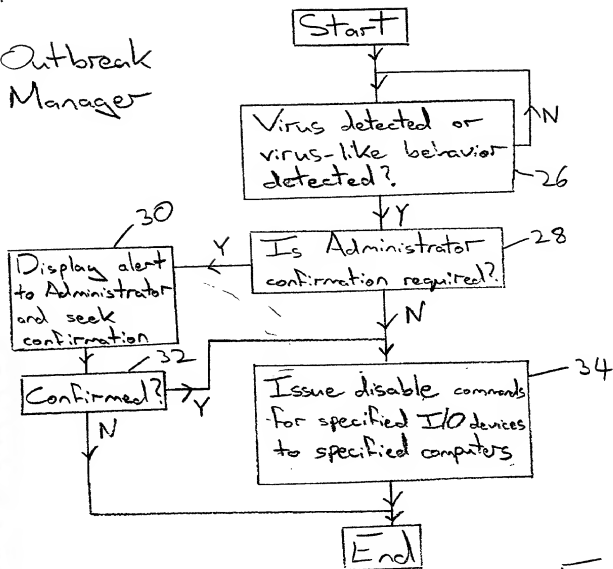 Outbreak
Manager
Start
N
Virus detected or
virus-like behavior
detected?
26
Y
Is Administrator
confirmation required?
28
Y
30
Display alert
to Administrator
and seek
confirmation
N
32
Confirmed?
Y
N
Issue disable commands
for specified I/O devices
to specified computers
34
End